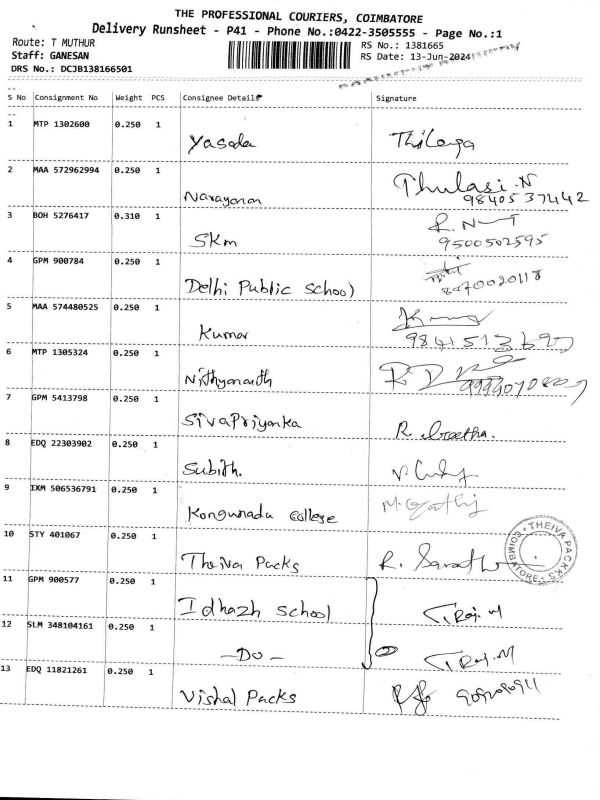 THE PROFESSIONAL COURIERS, COIMBATORE
Delivery Runsheet - P41 - Phone No.:0422-3505555 - Page No.:1
Route: T MUTHUR RS No.: 1381665
Staff: GANESAN RS Date: 13-Jun-2024
DRS No.: DCJB138166501
S No Consignment No Weight PCS Consignee Details Signature
1 MTP 1302600 0.250 1
Yasoda Thilaga
2 MAA 572962994 0.250 1
Narayanan Thulasi.N
98405 37442
3 BOH 5276417 0.310 1
SKm 9500502595
4 GPM 900784 0.250 1
Delhi Public School 8070020118
5 MAA 574480525 0.250 1
Kumar
6 MTP 1305324 0.250 1
Nithyananth
7 GPM 5413798 0.250 1
SivaPriyanka R.
8 EDQ 22303902 0.250 1
Subith.
9 IXM 506536791 0.250 1
Kongunadu College
10 STY 401067 0.250 1
Theiva Packs R.
THEIVA PACKS
COIMBATORE
11 GPM 900577 0.250 1
Idhazh School T Raj.M
12 SLM 348104161 0.250 1
-Do- T Raj.M
13 EDQ 11821261 0.250 1
Vishal Packs